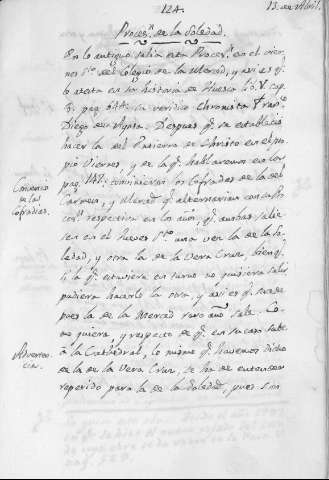 124.
13. de Abril.
Proces.n de la Soledad.
En lo antiguo salia esta Proces.n en el vier-
nes S.to del Colegio de la Merced, y asi es q.e
lo atesta en su historia de Huesca lib. V. cap.
pag. 644. su veridico Chronista
Diego de Aynsa. Despues q.e se establecio
hacer la del Entierro de Christo en el pro-
pio Viernes, y de la q.e hablaremos en la
pag. 147: convinieron los Cofrades de la del
Carmen, y Merced q.e alternarian con su Pro-
ces.n respectiva en los años, q.e ambas salie-
sen en el Jueves S.to una vez la de la So-
ledad, y otra la de la Vera Cruz, bien q.e
si la q.e estuviera en turno no pudiera salir,
pudiera hacerlo la otra, y asi es q.e sucede
pues la de la Merced raro año sale. Co-
mo quiera, y respecto de q.e en su caso sube
à la Cathedral, lo mismo q.e havemos dicho
de la de la Vera Cruz, se ha de entender
repetido para la de la Soledad, pues son
Convenio
de las
Cofradias.
Adverten-
cia.